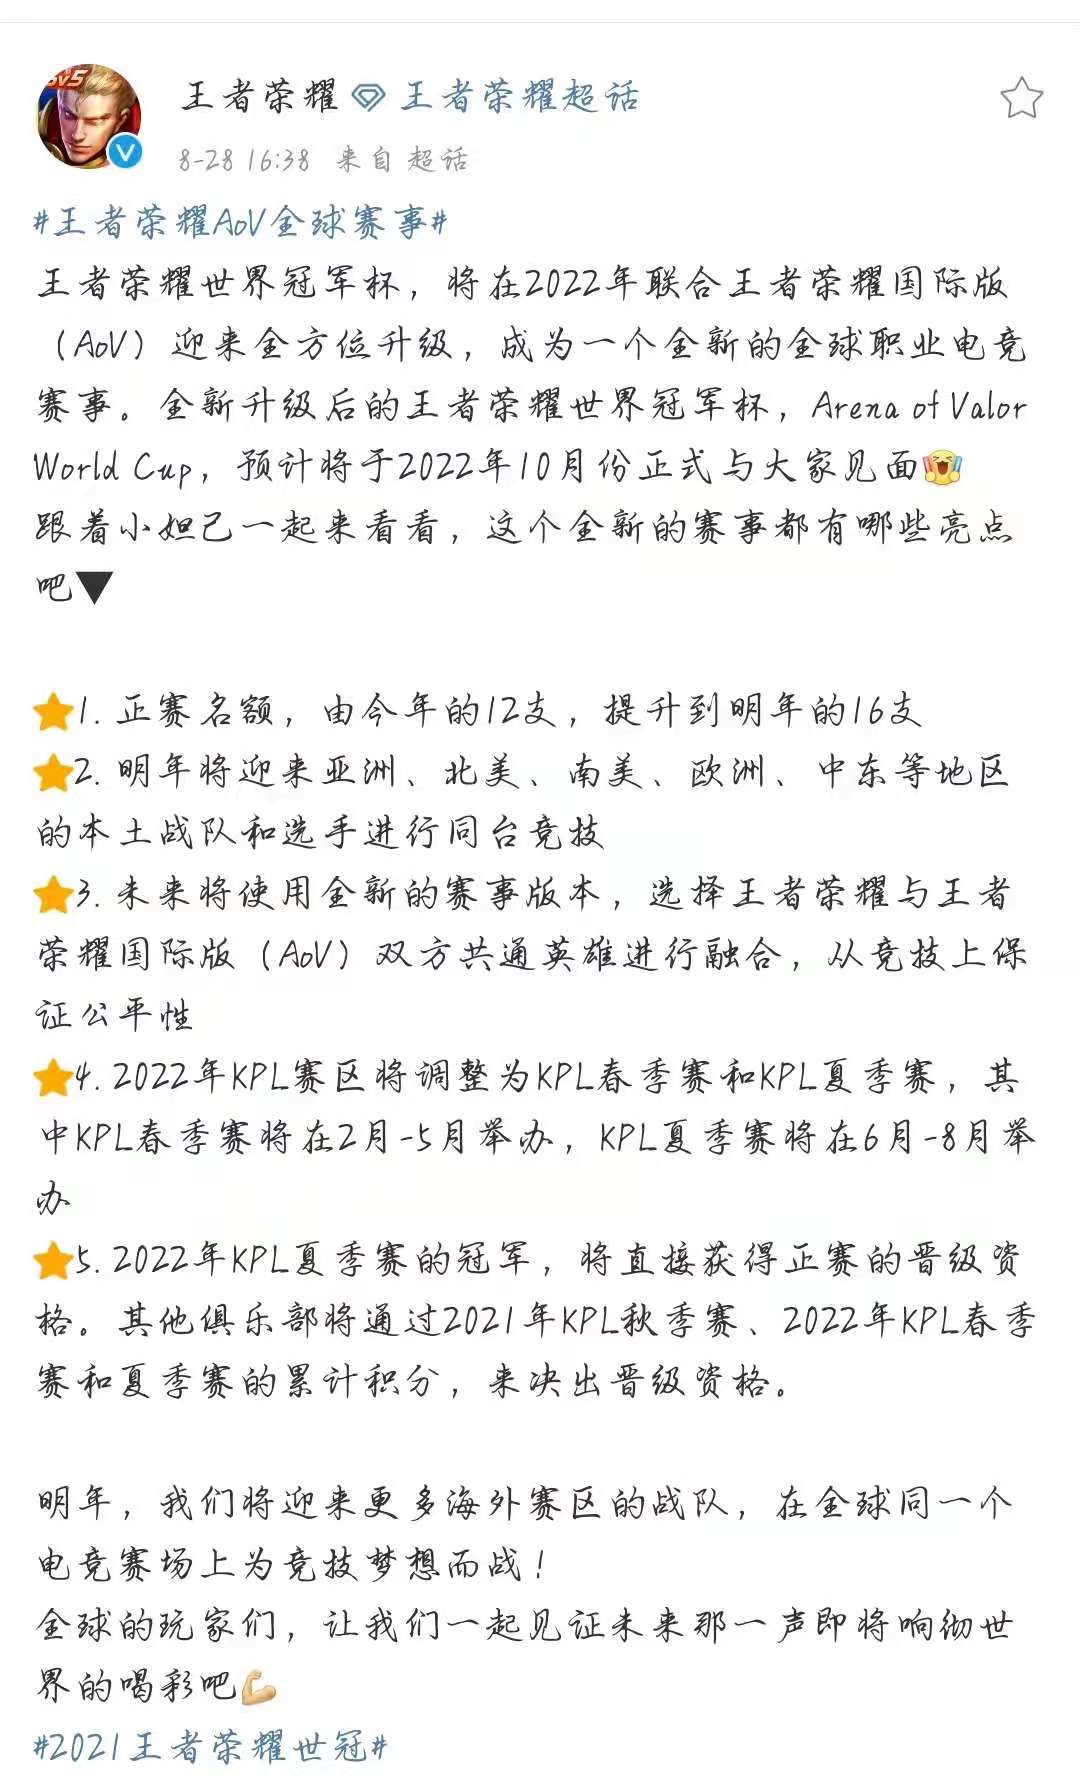 王者荣耀 王者荣耀超话
8-28 16:38 来自 超话
#王者荣耀AoV全球赛事#
王者荣耀世界冠军杯，将在2022年联合王者荣耀国际版
（AoV）迎来全方位升级，成为一个全新的全球职业电竞
赛事。全新升级后的王者荣耀世界冠军杯，Arena of Valor
World Cup，预计将于2022年10月份正式与大家见面
跟着小妲己一起来看看，这个全新的赛事都有哪些亮点
吧▼
⭐1. 正赛名额，由今年的12支，提升到明年的16支
⭐2. 明年将迎来亚洲、北美、南美、欧洲、中东等地区
的本土战队和选手进行同台竞技
⭐3. 未来将使用全新的赛事版本，选择王者荣耀与王者
荣耀国际版（AoV）双方共通英雄进行融合，从竞技上保
证公平性
⭐4. 2022年KPL赛区将调整为KPL春季赛和KPL夏季赛，其
中KPL春季赛将在2月-5月举办，KPL夏季赛将在6月-8月举
办
⭐5. 2022年KPL夏季赛的冠军，将直接获得正赛的晋级资
格。其他俱乐部将通过2021年KPL秋季赛、2022年KPL春季
赛和夏季赛的累计积分，来决出晋级资格。
明年，我们将迎来更多海外赛区的战队，在全球同一个
电竞赛场上为竞技梦想而战！
全球的玩家们，让我们一起见证未来那一声即将响彻世
界的喝彩吧💪
#2021王者荣耀世冠#